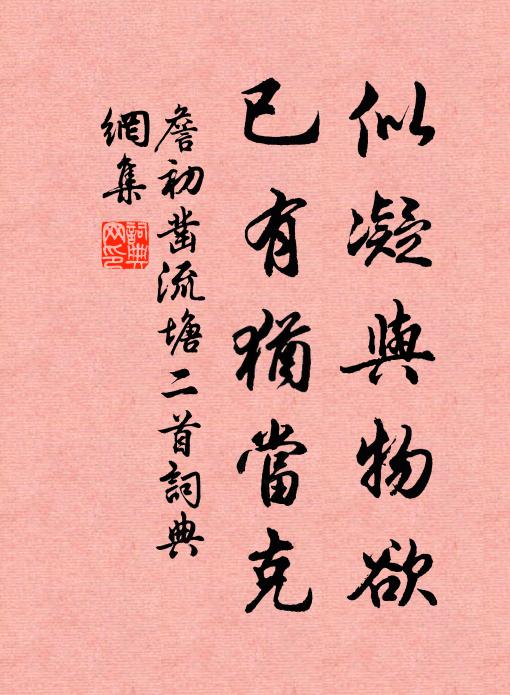 似凝與物欲
已有猶當克
詹初凿流塘二首詞典
網集
詞典
网印